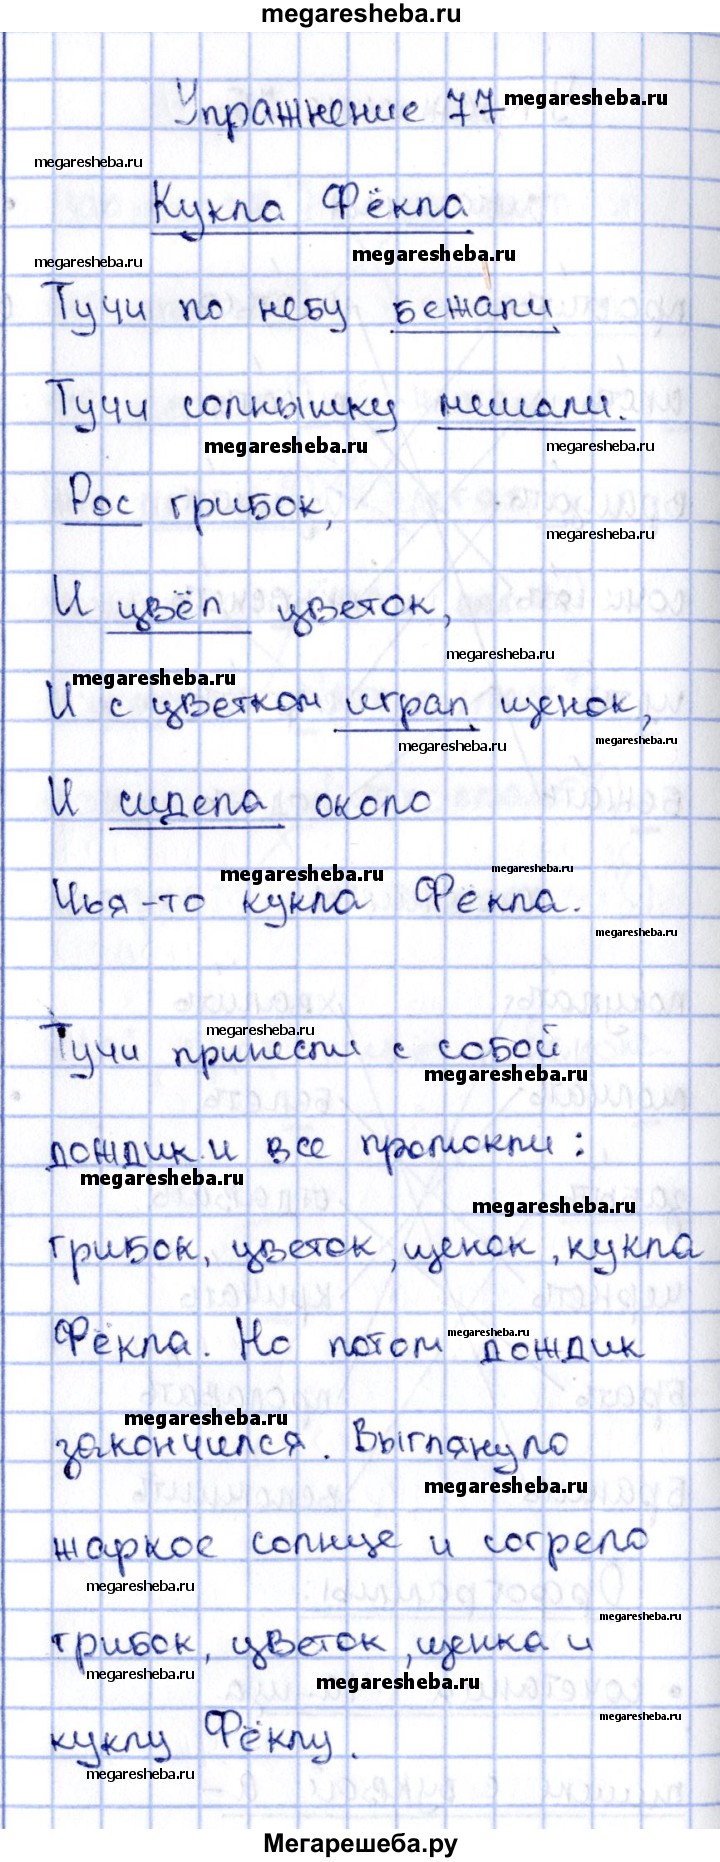 megaresheba.ru
Упражнение 77 megaresheba.ru
megaresheba.ru
Кукла Фёкла
megaresheba.ru megaresheba.ru
Тучи по небу бежали
Тучи солнышку мешали.
megaresheba.ru megaresheba.ru
Рос грибок,
И цвёл цветок,
megaresheba.ru
megaresheba.ru
И с цветком играл щенок,
megaresheba.ru megaresheba.ru
И сидела около
megaresheba.ru megaresheba.ru
Чья-то кукла Фёкла.
megaresheba.ru
megaresheba.ru
Тучи принесли с собой
megaresheba.ru
дождик и все промокли:
megaresheba.ru
megaresheba.ru
грибок, цветок, щенок, кукла
megaresheba.ru
Фёкла. Но потом дождик
megaresheba.ru
закончился. Выглянуло
megaresheba.ru
жаркое солнце и согрело
megaresheba.ru
megaresheba.ru
грибок, цветок, щенка и
megaresheba.ru megaresheba.ru
megaresheba.ru
куклу Фёклу.
megaresheba.ru
Мегарешеба.ру